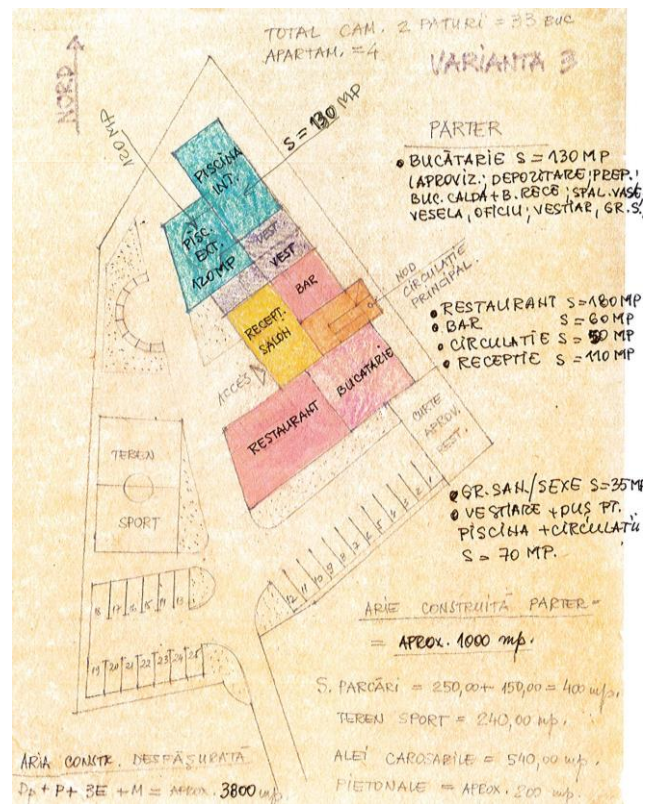 TOTAL CAM. 2 PATURI = 33 BUC
APARTAM. = 4
VARIANTA 3
NORD
120 MP
S = 130 MP
PARTER
• BUCĂTARIE S = 130 MP
(APROVIZ.; DEPOZITARE; PREP.;
BUC. CALDA + B. RECE; SPAL. VASE
VESELA, OFICIU; VESTIAR, GR. S.
PISCINA
INT.
PISC.
EXT.
120 MP
VEST
VEST
BAR
NOD
CIRCULATIE
PRINCIPAL.
RECEPT.
SALON
ACCES
BUCATARIE
RESTAURANT
CURTE
APROV.
REST.
• RESTAURANT S = 180 MP
• BAR S = 60 MP
• CIRCULATIE S = 50 MP
• RECEPTIE S = 110 MP
TEREN
SPORT
• GR. SAN./SEXE S = 35 MP
• VESTIARE + DUȘ PT.
PISCINA + CIRCULATII
S = 70 MP.
12 11 10 9 8 7 6 5 4 3 2 1
18 17 16 15 14 13
19 20 21 22 23 24 25
ARIE CONSTRUITĂ PARTER =
= APROX. 1000 mp.
S. PARCĂRI = 250,00 + 150,00 = 400 mp.
TEREN SPORT = 240,00 mp.
ALEI CAROSABILE = 540,00 mp.
PIETONALE = APROX. 200 mp.
ARIA CONSTR. DESFĂȘURATĂ
Dp + P + 3E + M = APROX. 3800 mp.